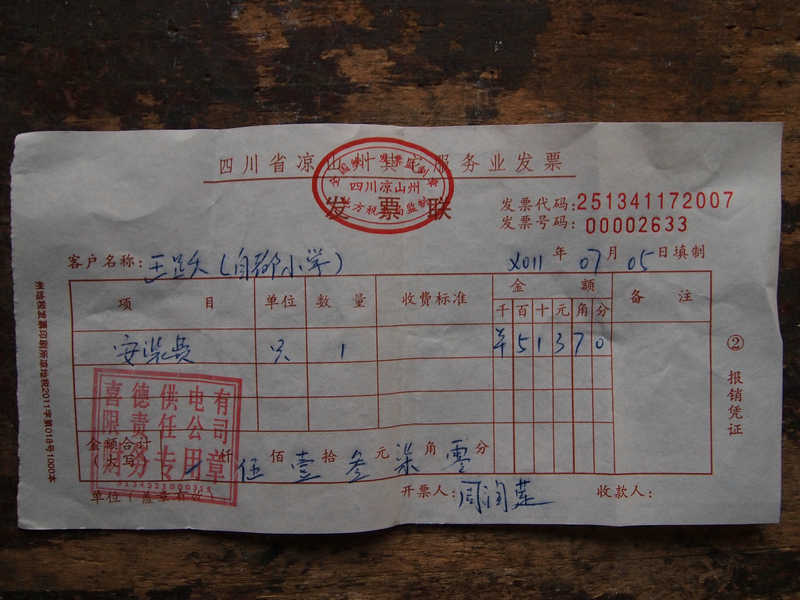 四川省凉山州其它服务业发票
四川凉山州
发票联
发票代码:251341172007
发票号码:00002633
客户名称: 王跃(自都小学) 2011年07月05日填制
项目 单位 数量 收费标准 金额 备注
千 百 十 元 角 分
安装费 只 1 ¥51370
喜德供电有
限责任公司
财务专用章
金额合计
(大写) 仟伍佰壹拾叁元柒角零分
单位(盖章有效) 开票人: 周润莲 收款人:
② 报销凭证